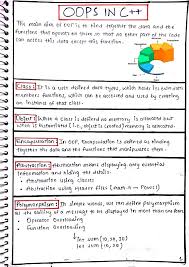 OOPS IN C++
The main aim of OOP is to bind together the data and the
functions that operate on them so that no other part of the code
can access this data except this function.
Class: It is a user defined data types, which holds its own data
members functions, which can be accessed and used by creating
an instance of that class.
Object: When a class is defined no memory is allocated but
when it is instantiated (i.e., object is created) memory is allocated.
Encapsulation: In OOP, Encapsulation is defined as binding
together the data and the functions that manipulates them.
Abstraction: Abstraction means displaying only essential
information and hiding the details.
• Abstraction using classes
• Abstraction using Header files (math.h → Pow())
Polymorphism: In simple words, we can define polymorphism
as the ability of a message to be displayed in more than one form.
• Operator Overloading
• Function Overloading
int sum(10,20,30)
int sum(10,20)